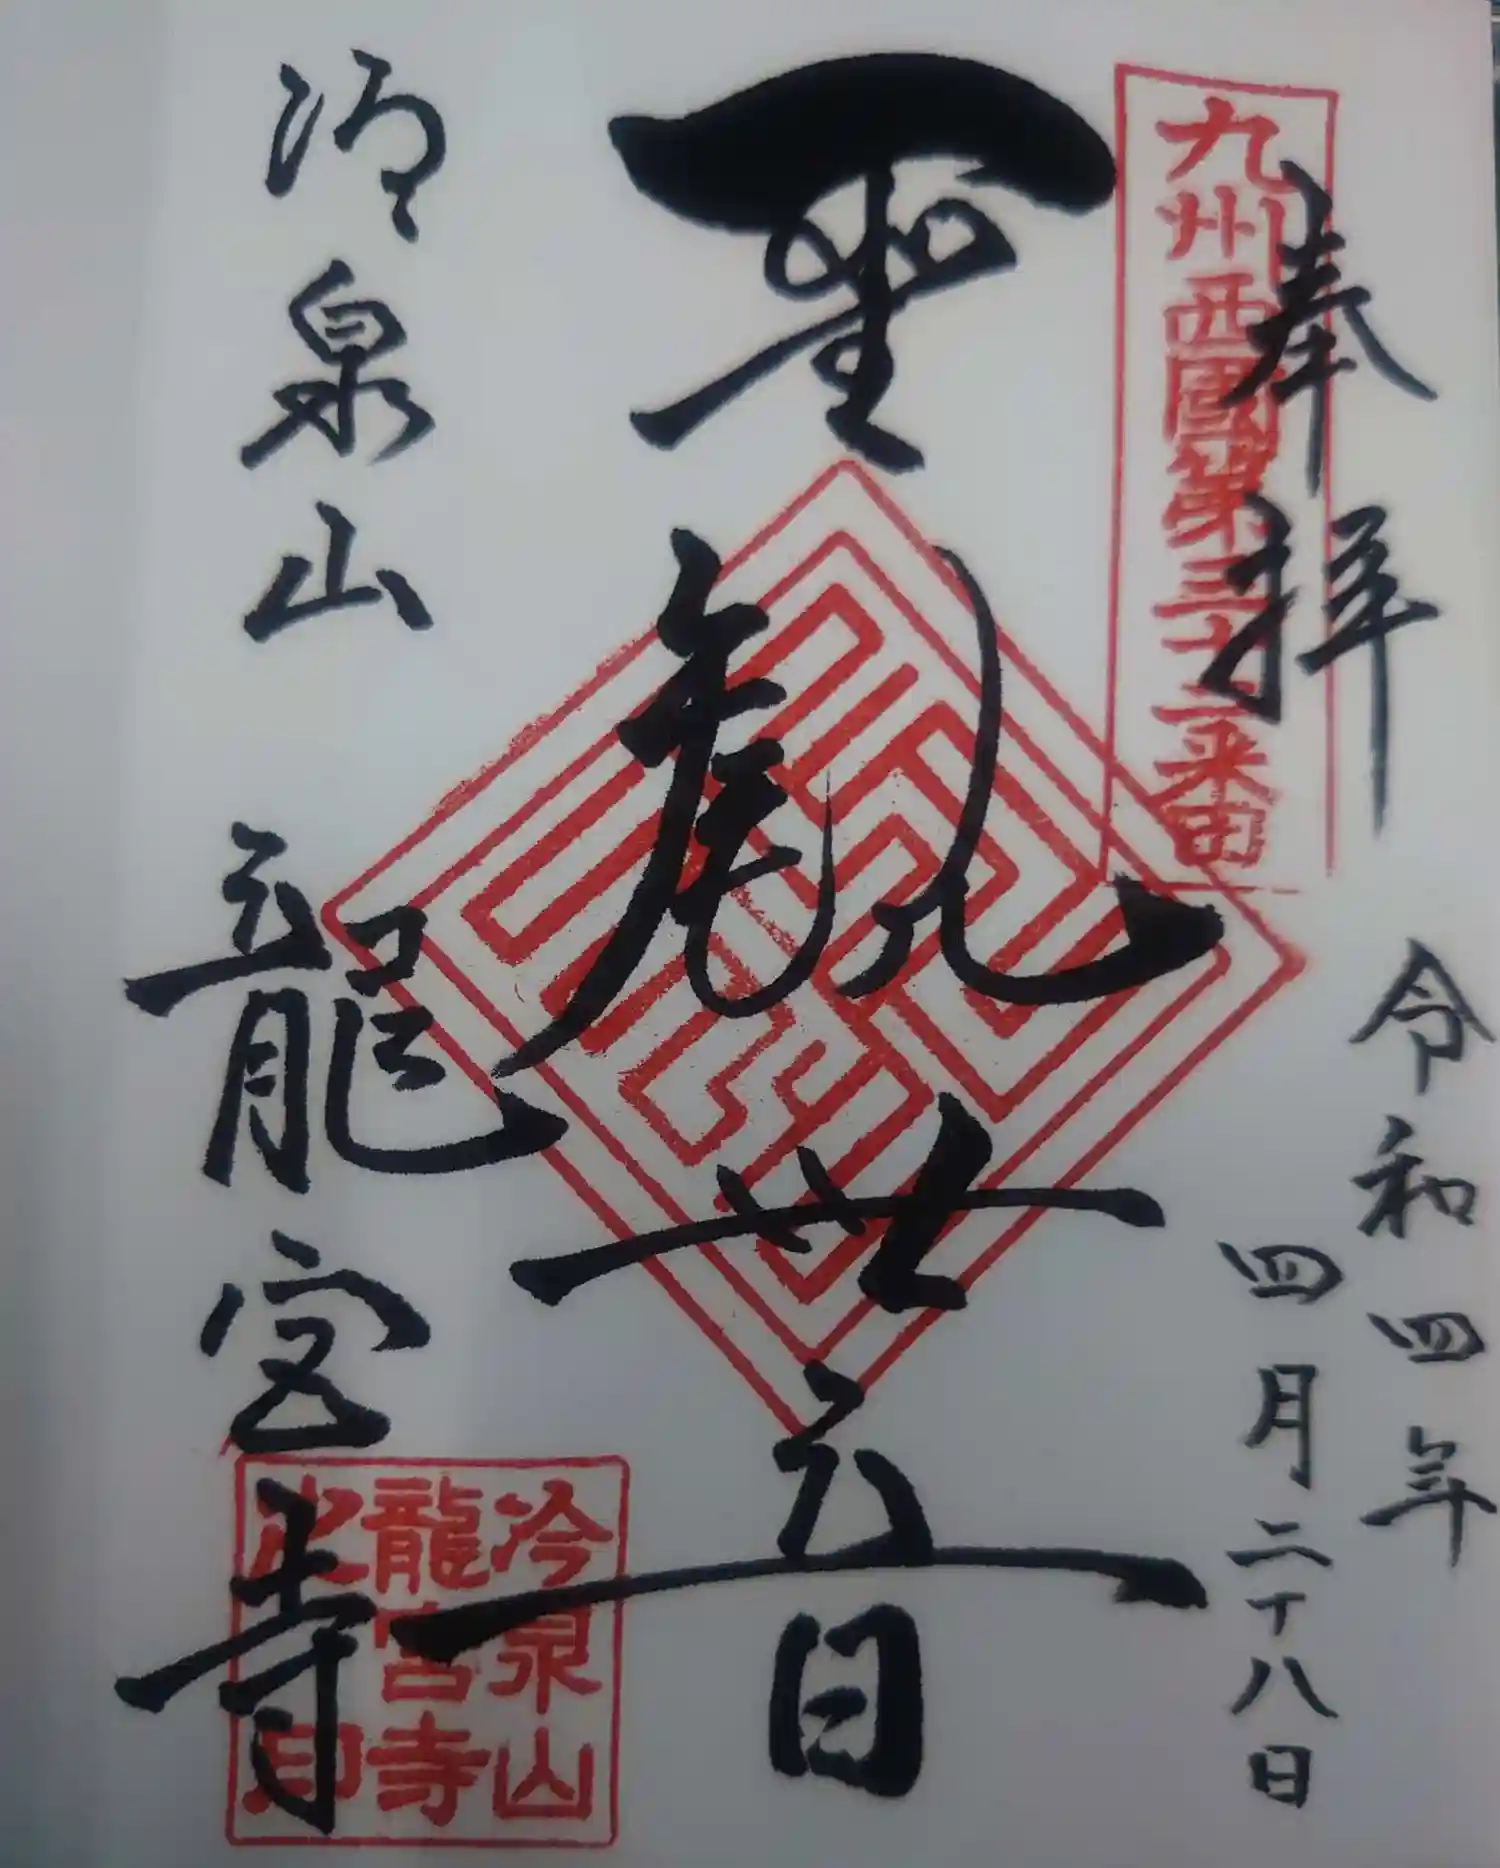 奉拝
九州西國第三十二番
令和四年
四月二十八日
聖観世音
冷泉山 龍宮寺
冷泉山
龍宮寺
之印